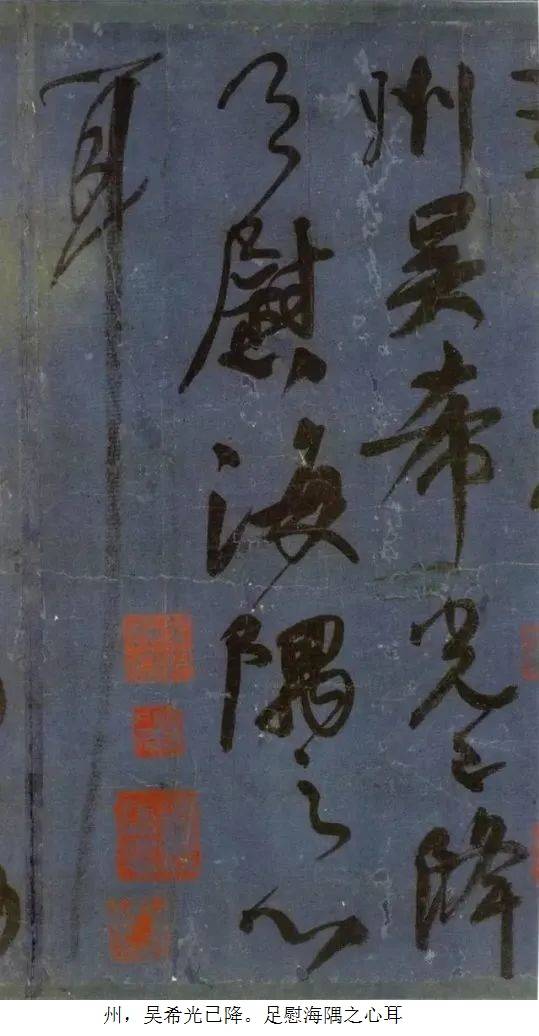 州吴希光已降
足慰海隅之心
耳
州，吴希光已降。足慰海隅之心耳